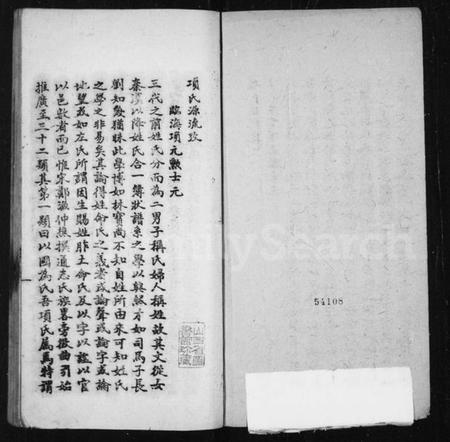 項氏源流攷
臨海項元勲士元
三代之前姓氏分而為二男子稱氏婦人稱姓故其文從女
秦漢以降姓氏合一簿狀譜系之學以興然才如司馬子長
劉知幾猶昧此學博如林寶尚不知自姓所由來可知姓氏
之學之非易矣其論得姓命氏之義者或論聲或論字或論
地望或如左氏所謂因生賜姓胙土命氏及以字以謚以官
以邑數者而已惟宋鄭漁仲撰通志氏族畧旁徵曲引始
推廣至三十二類其第一類曰以國為氏吾項氏屬焉特謂
54108
FamilySearch